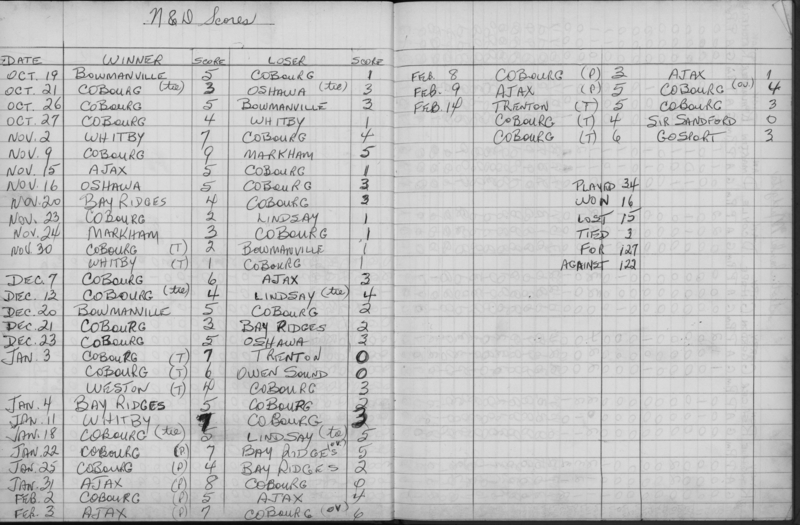 N & D Scores
DATE WINNER SCORE LOSER SCORE
OCT. 19 BOWMANVILLE 5 COBOURG 1
OCT. 21 COBOURG (tie) 3 OSHAWA (tie) 3
OCT. 26 COBOURG 5 BOWMANVILLE 3
OCT. 27 COBOURG 4 WHITBY 1
NOV. 2 WHITBY 7 COBOURG 4
NOV. 9 COBOURG 9 MARKHAM 5
NOV. 15 AJAX 5 COBOURG 1
NOV. 16 OSHAWA 5 COBOURG 3
NOV. 20 BAY RIDGES 4 COBOURG 3
NOV. 23 COBOURG 2 LINDSAY 1
NOV. 24 MARKHAM 3 COBOURG 1
NOV. 30 COBOURG (T) 2 BOWMANVILLE 1
WHITBY (T) 1 COBOURG 1
DEC. 7 COBOURG 6 AJAX 3
DEC. 12 COBOURG (tie) 4 LINDSAY (tie) 4
DEC. 20 BOWMANVILLE 5 COBOURG 2
DEC. 21 COBOURG 3 BAY RIDGES 2
DEC. 23 COBOURG 5 OSHAWA 3
JAN. 3 COBOURG (T) 7 TRENTON 0
COBOURG (T) 6 OWEN SOUND 0
WESTON (T) 4 COBOURG 3
JAN. 4 BAY RIDGES 5 COBOURG 2
JAN. 11 WHITBY 7 COBOURG 3
JAN. 18 COBOURG (tie) 5 LINDSAY (tie) 5
JAN. 22 COBOURG (P) 7 BAY RIDGES (OV) 5
JAN. 25 COBOURG (P) 4 BAY RIDGES 2
JAN. 31 AJAX (P) 8 COBOURG
FEB. 2 COBOURG (P) 5 AJAX 4
FEB. 3 AJAX (P) 7 COBOURG (OV) 6
FEB. 8 COBOURG (P) 3 AJAX 1
FEB. 9 AJAX (P) 5 COBOURG (OV) 4
FEB. 14 TRENTON (T) 5 COBOURG 3
COBOURG (T) 4 SIR SANDFORD 0
COBOURG (T) 6 GOSPORT 3
PLAYED 34
WON 16
LOST 15
TIED 3
FOR 127
AGAINST 122